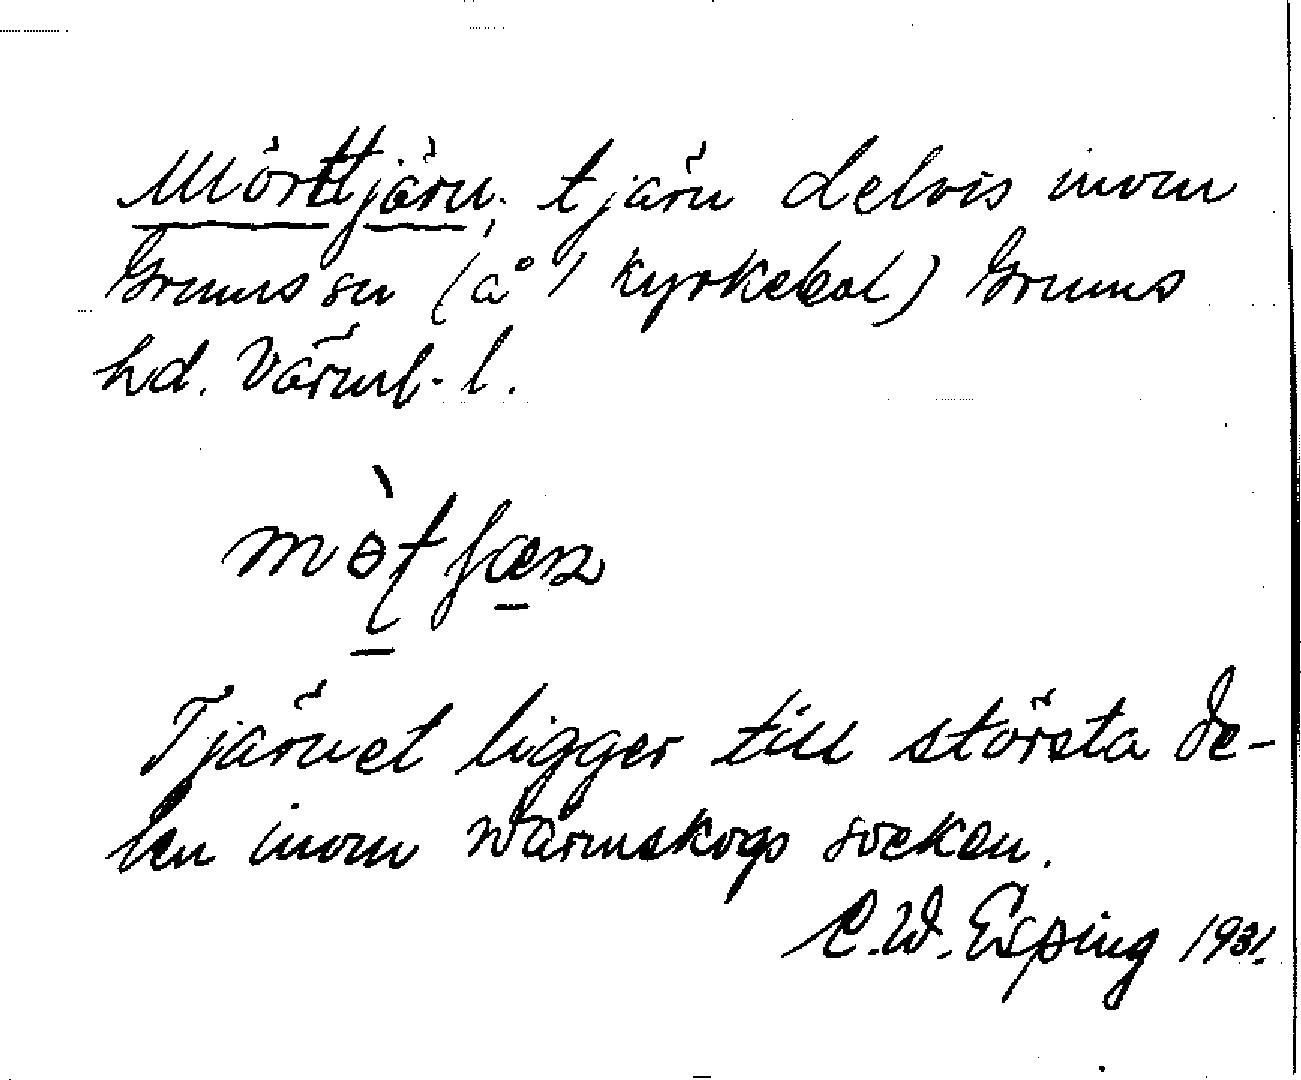 Mörttjärn, tjärn delvis inom
Grums sn (å 1 Kyrkebol) Grums
hd. Värml. l.
Tjärnet ligger till största de-
len inom Wärmskogs socken.
C.W. Esping 1931.